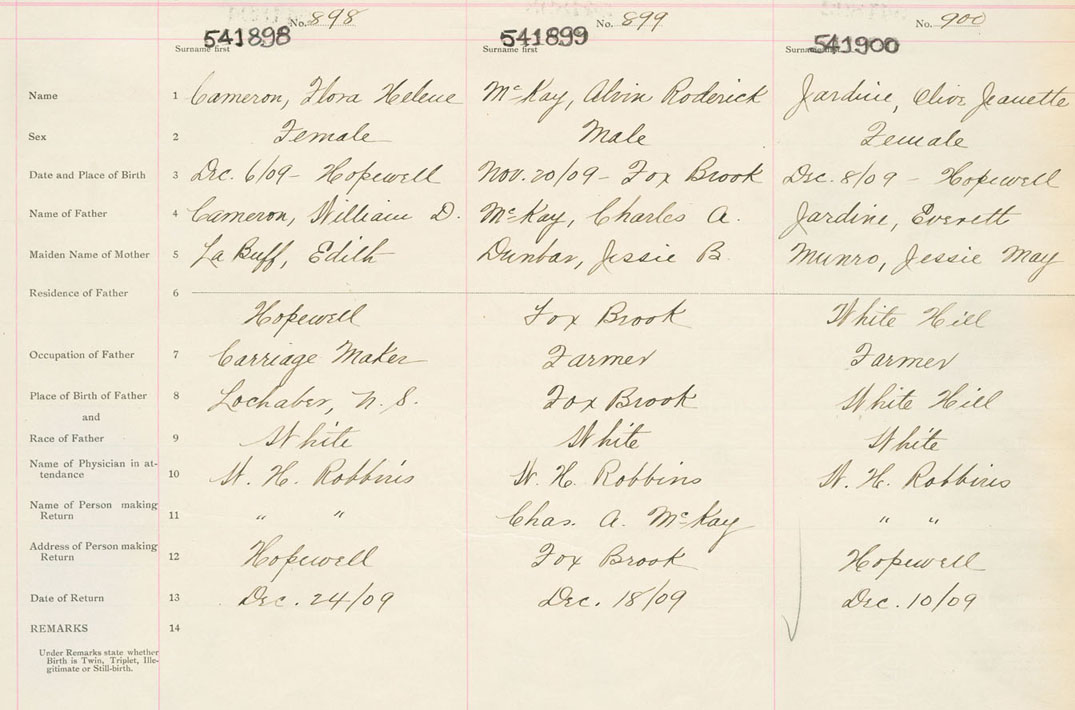 No. 898 No. 899 No. 900
541898 541899 541900
Surname first Surname first Surname first
Name 1 Cameron, Flora Helene McKay, Alvin Roderick Jardine, Olive Jeanette
Sex 2 Female Male Female
Date and Place of Birth 3 Dec. 6/09 - Hopewell Nov. 20/09 - Fox Brook Dec. 8/09 - Hopewell
Name of Father 4 Cameron, William D. McKay, Charles A. Jardine, Everett
Maiden Name of Mother 5 La Buff, Edith Dunbar, Jessie B. Munro, Jessie May
Residence of Father 6
Hopewell Fox Brook White Hill
Occupation of Father 7 Carriage Maker Farmer Farmer
Place of Birth of Father 8 Lochaber, N. S. Fox Brook White Hill
and
Race of Father 9 White White White
Name of Physician in at-
tendance 10 W. H. Robbins W. H. Robbins W. H. Robbins
Name of Person making
Return 11 " " Chas. A. McKay " "
Address of Person making
Return 12 Hopewell Fox Brook Hopewell
Date of Return 13 Dec. 24/09 Dec. 18/09 Dec. 10/09
REMARKS 14
Under Remarks state whether
Birth is Twin, Triplet, Ille-
gitimate or Still-birth.